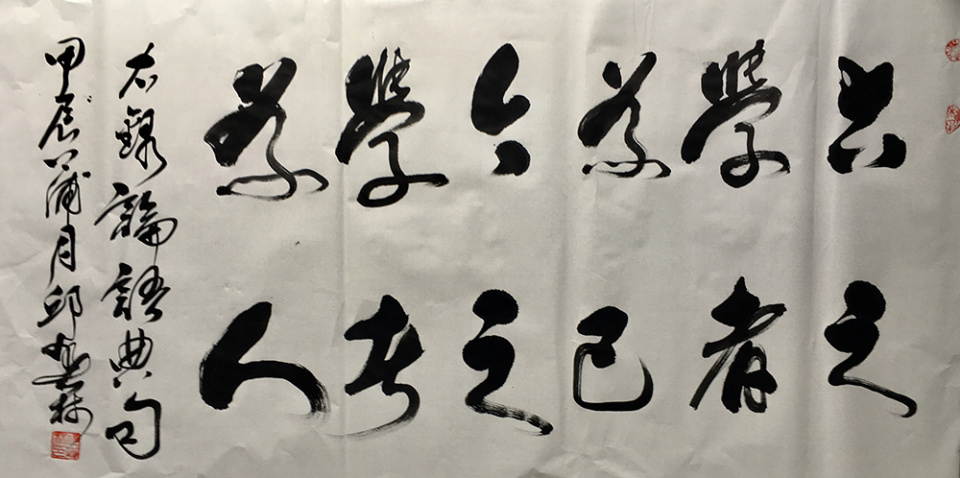 古之
學者
為己
今之
學者
為人
右錄論語典句
甲辰蒲月邱林